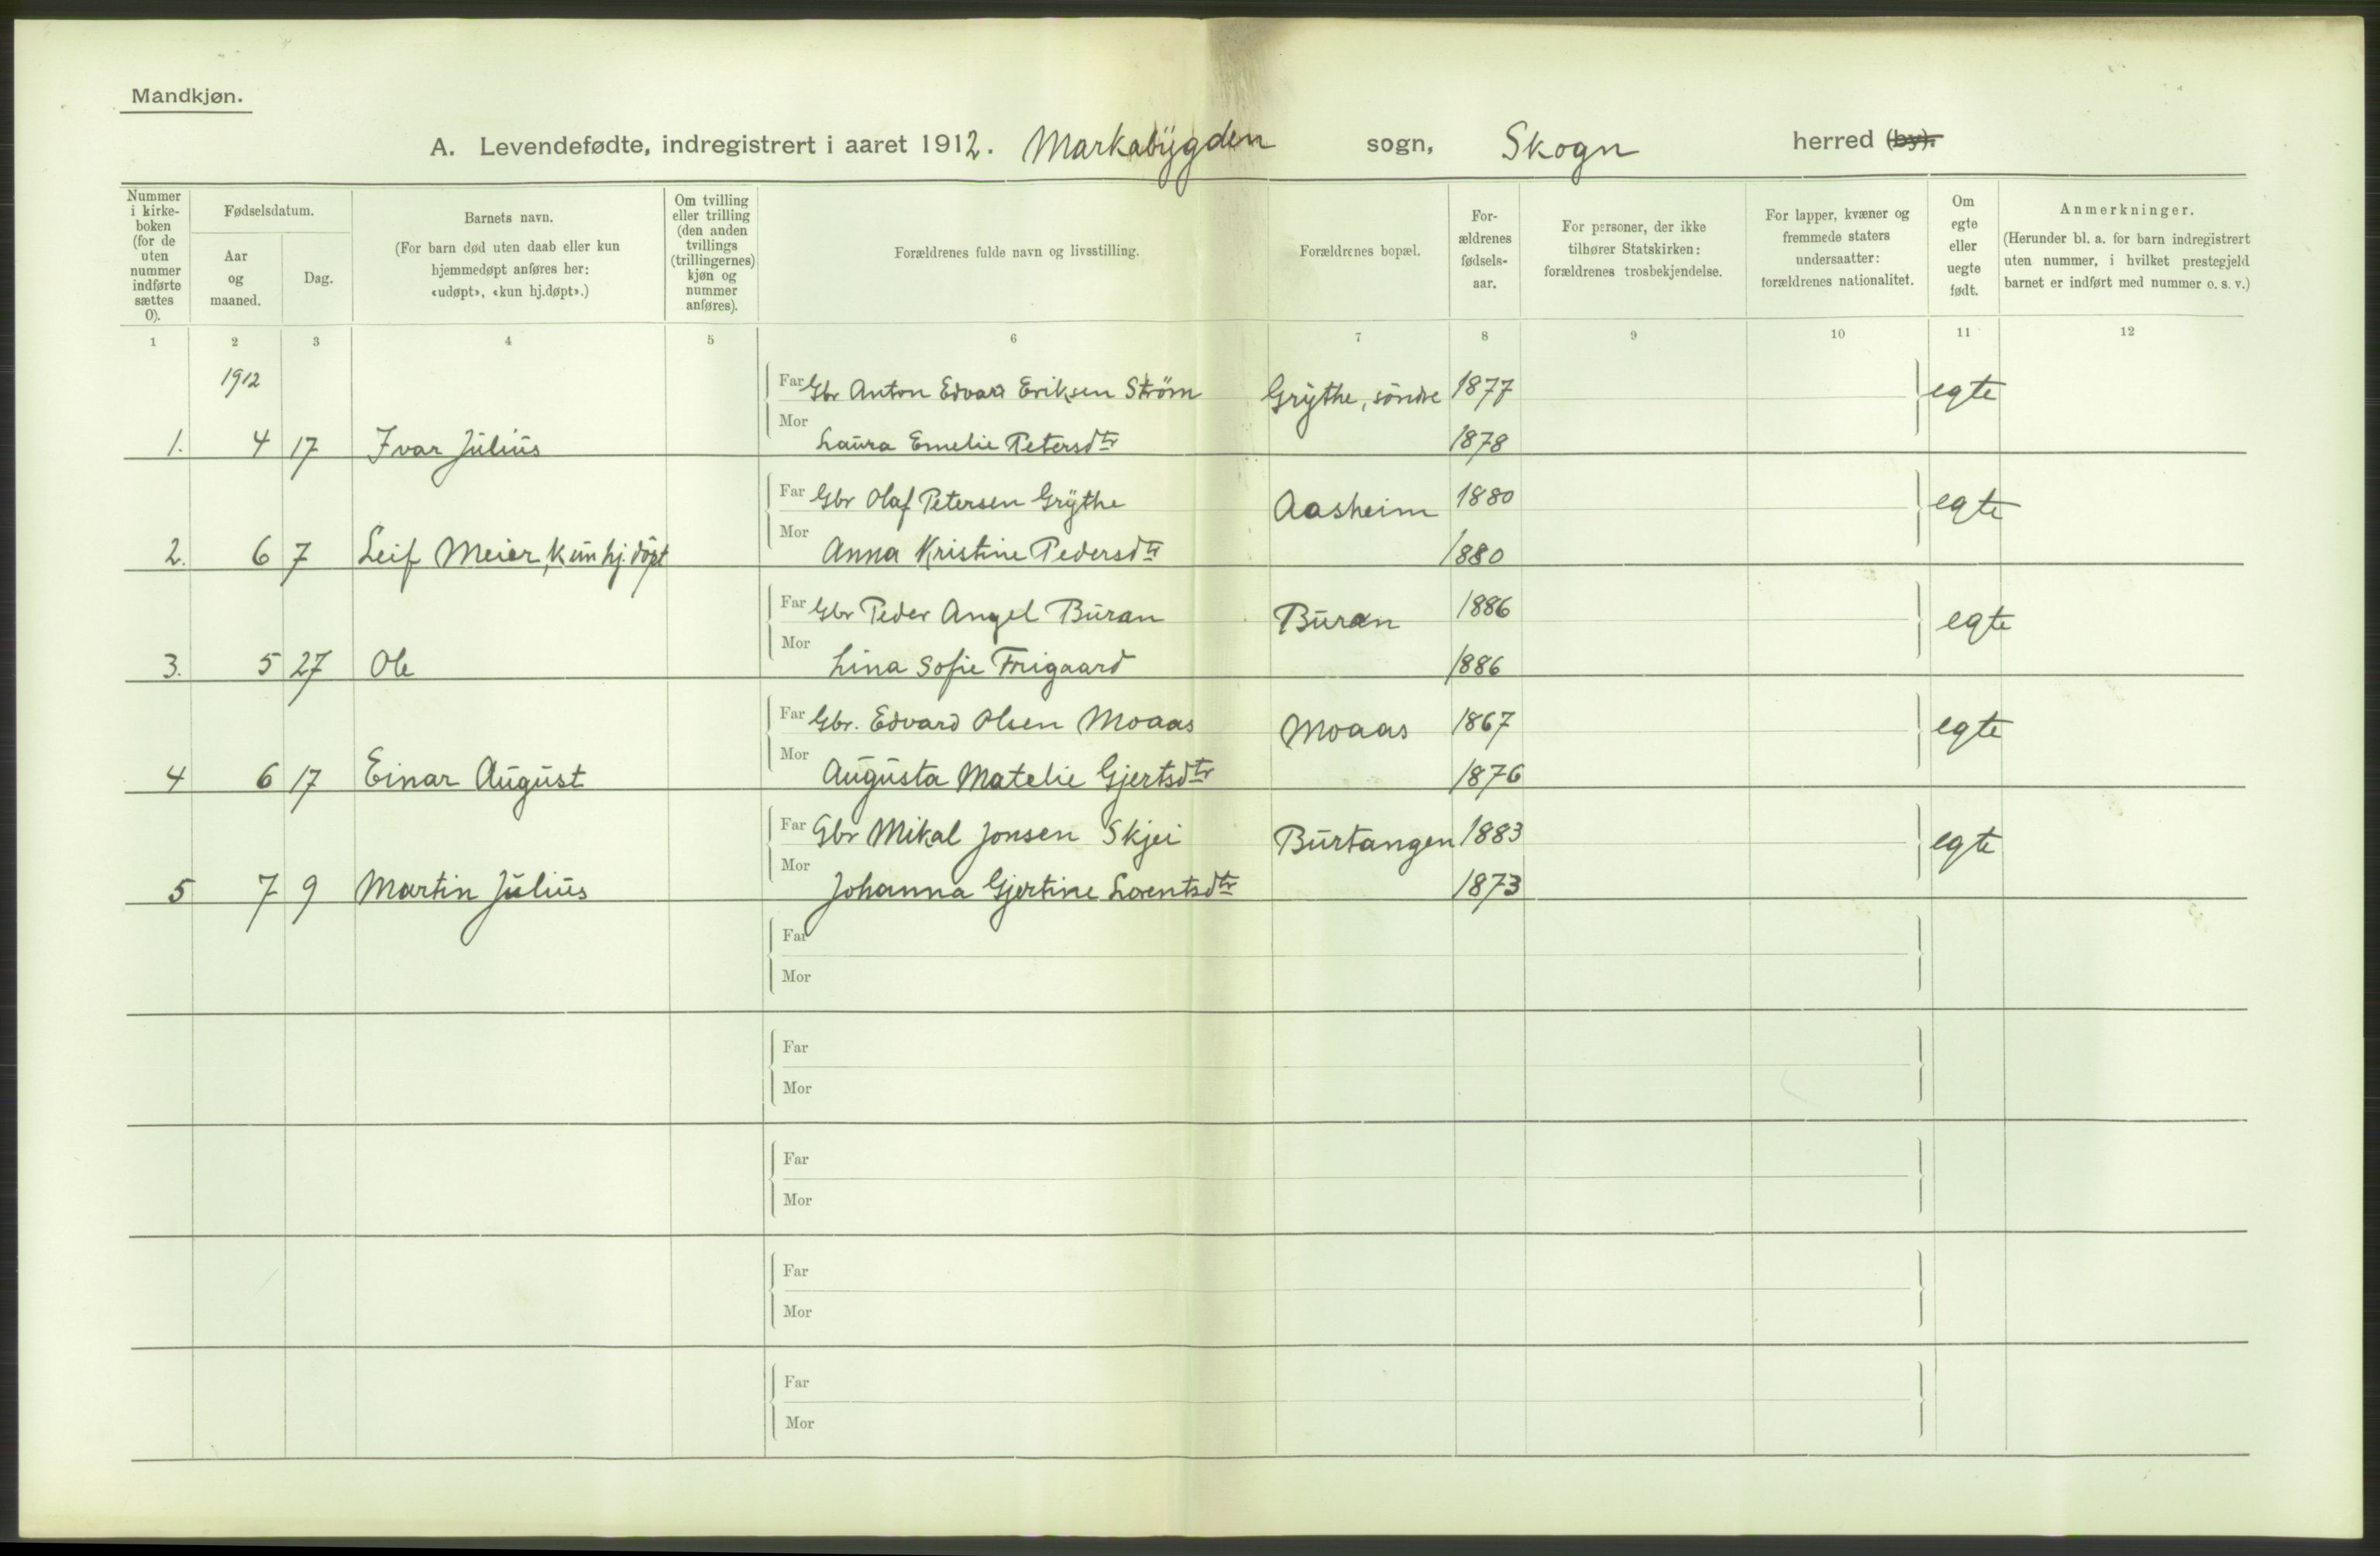 Mandkjøn.
A. Levendefødte, indregistrert i aaret 1912. Markabygden sogn, Skogn herred (by).
Nummer i kirke-boken (for de uten nummer indførte sættes 0).
Fødselsdatum.
Aar og maaned.
Dag.
Barnets navn.
(For barn død uten daab eller kun hjemmedøpt anføres her: «udøpt», «kun hj.døpt».)
Om tvilling eller trilling (den anden tvillings (trillingernes) kjøn og nummer anføres).
Forældrenes fulde navn og livsstilling.
Forældrenes bopæl.
For-ældrenes fødsels-aar.
For personer, der ikke tilhører Statskirken: forældrenes trosbekjendelse.
For lapper, kvæner og fremmede staters undersaatter: forældrenes nationalitet.
Om egte eller uegte født.
Anmerkninger.
(Herunder bl. a. for barn indregistrert uten nummer, i hvilket prestegjeld barnet er indført med nummer o. s. v.)
1 2 3 4 5 6 7 8 9 10 11 12
1912
Far Gbr Anton Edvard Eriksen Ström Grythe, söndre 1877 egte
Mor
1. 4 17 Ivar Julius Laura Emelie Petersdtr 1878
Far Gbr Olaf Petersen Grythe Aasheim 1880 egte
Mor
2. 6 7 Leif Meier, kun hj. döpt Anna Kristine Pedersdtr 1880
Far Gbr Peder Angel Buran Buran 1886 egte
Mor
3. 5 27 Ole Lina Sofie Frigaard 1886
Far Gbr. Edvard Olsen Moaas Moaas 1867 egte
Mor
4 6 17 Einar August Augusta Matelie Gjertsdtr 1876
Far Gbr Mikal Jonsen Skjei Burtangen 1883 egte
Mor
5 7 9 Martin Julius Johanna Gjertine Lorentsdtr 1873
Far
Mor
Far
Mor
Far
Mor
Far
Mor
Far
Mor